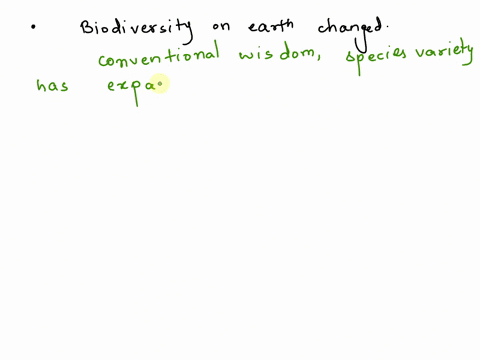 • Biodiversity on earth changed.
conventional wisdom, species variety
has expa